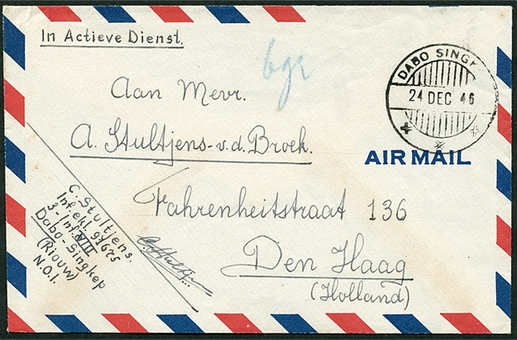 In Actieve Dienst.
bgr
DABO SINGK
24 DEC 46
Aan Mevr.
A. Stultjens-v.d. Broek.
AIR MAIL
Fahrenheitstraat 136
Den Haag
(Holland)
C. Stultjens.
3-Inf. VIII
Dabo-Singkep
(Riouw)
N.O.I.